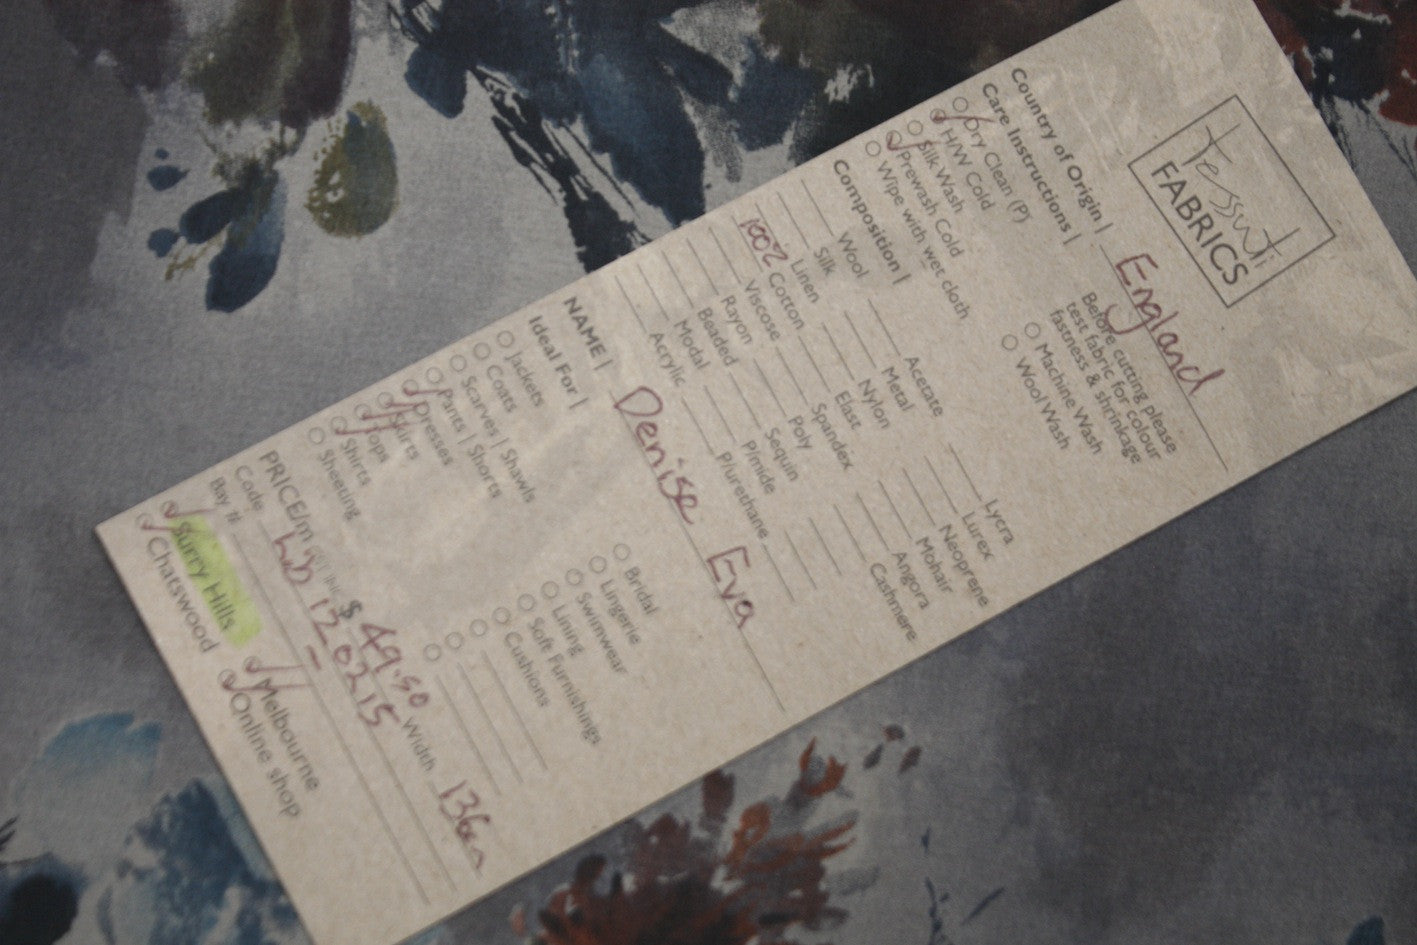 tessuti
FABRICS
Country of Origin | England
Care Instructions |
Before cutting please
test fabric for colour
fastness & shrinkage
Dry Clean (P)
H/W Cold
Silk Wash
Prewash Cold
Wipe with wet cloth
Machine Wash
Wool Wash
Composition |
Wool
Silk
Linen
100% Cotton
Viscose
Rayon
Beaded
Modal
Acrylic
Acetate
Metal
Nylon
Elast
Spandex
Poly
Sequin
Pimide
Plurethane
Lycra
Lurex
Neoprene
Mohair
Angora
Cashmere
NAME | Denise Eva
Ideal For |
Jackets
Coats
Scarves | Shawls
Pants | Shorts
Dresses
Skirts
Tops
Shirts
Sheeting
Bridal
Lingerie
Swimwear
Lining
Soft Furnishings
Cushions
PRICE/m $ 49.50 Width 136cm
Code 120215
Bay #
Surry Hills
Melbourne
Chatswood
Online shop